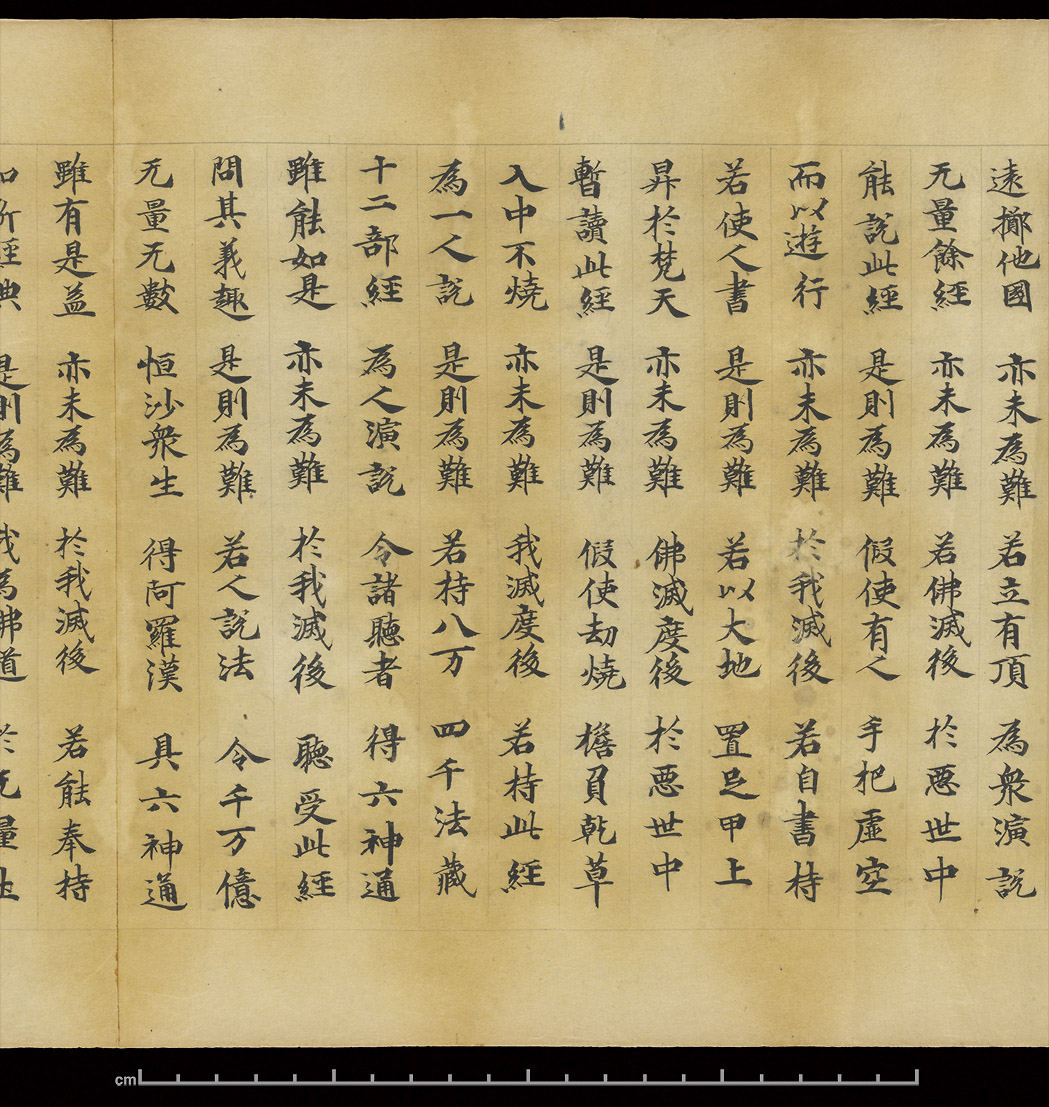 遠擲他國　亦未為難　若立有頂　為衆演說
无量餘經　亦未為難　若佛滅後　於惡世中
能說此經　是則為難　假使有人　手把虛空
而以遊行　亦未為難　於我滅後　若自書持
若使人書　是則為難　若以大地　置足甲上
昇於梵天　亦未為難　佛滅度後　於惡世中
暫讀此經　是則為難　假使劫燒　檐負乾草
入中不燒　亦未為難　我滅度後　若持此經
為一人說　是則為難　若持八万　四千法藏
十二部經　為人演說　令諸聽者　得六神通
雖能如是　亦未為難　於我滅後　聽受此經
問其義趣　是則為難　若人說法　令千万億
无量无數　恒沙衆生　得阿羅漢　具六神通
雖有是益　亦未為難　於我滅後　若能奉持
如斯經典　是則為難　我為佛道　於无量土
cm